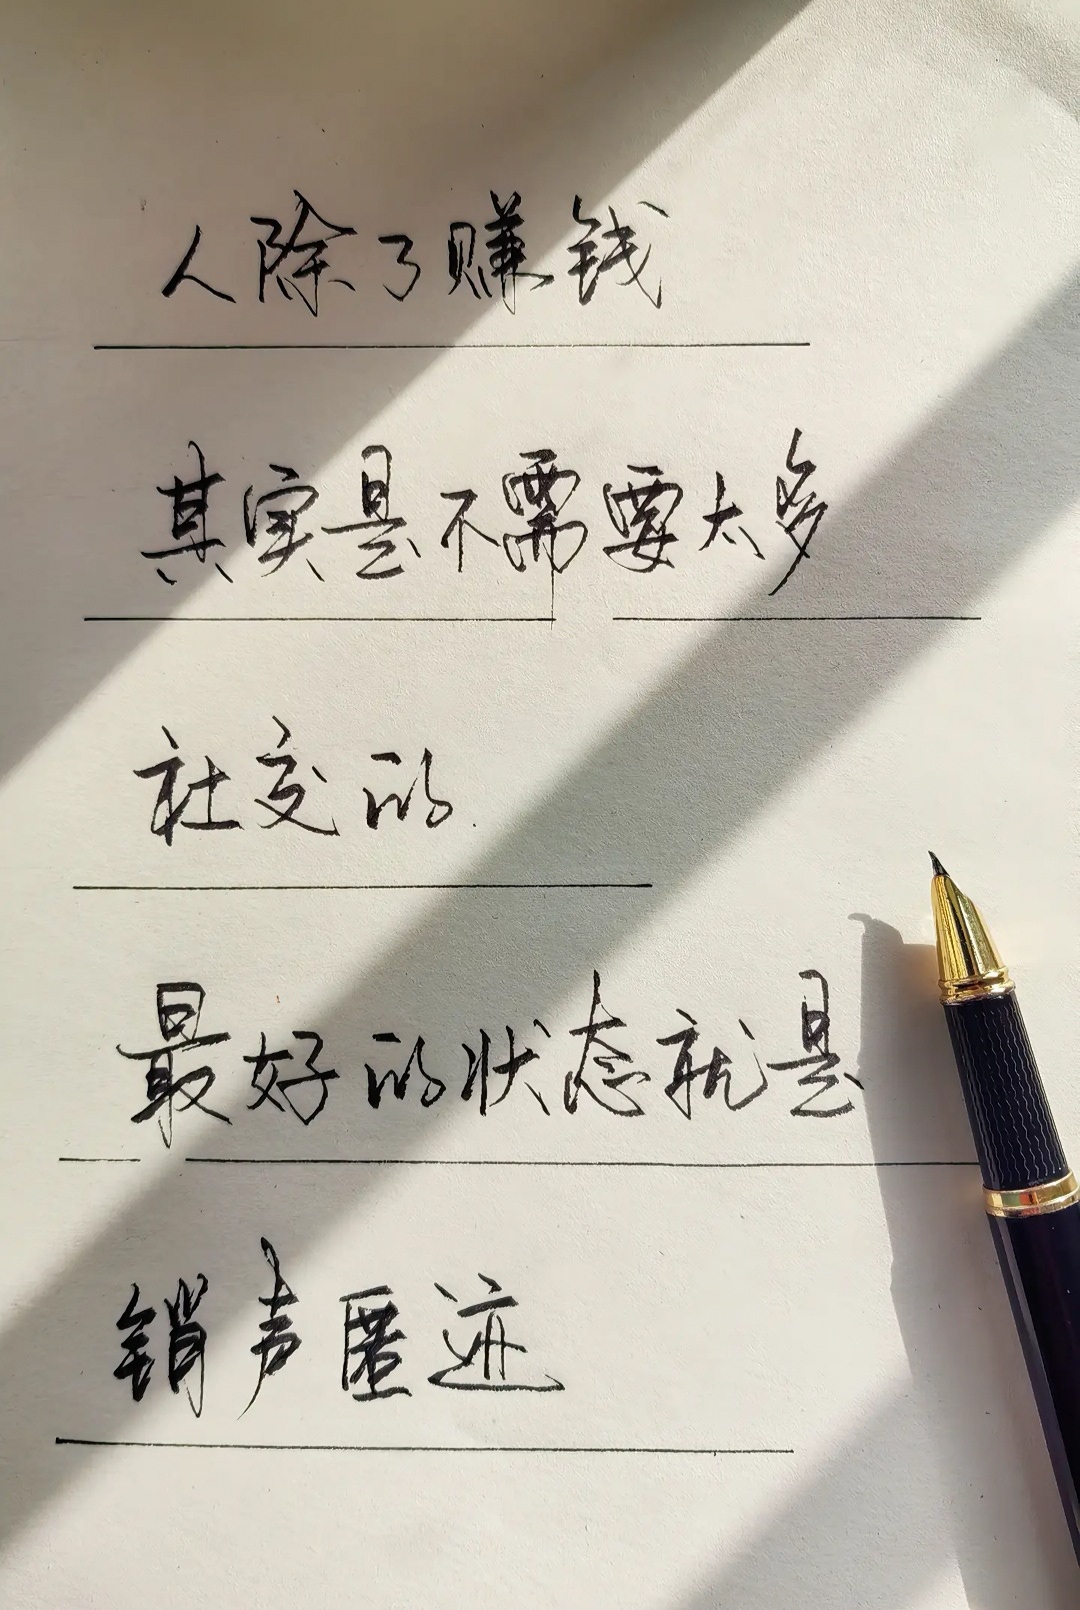 人除了赚钱
其实是不需要太多
社交的
最好的状态就是
销声匿迹